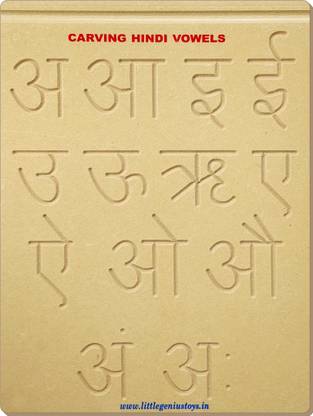 CARVING HINDI VOWELS
अ आ इ ई
उ ऊ ऋ ए
ऐ ओ औ
अं अः
www.littlegeniustoys.in